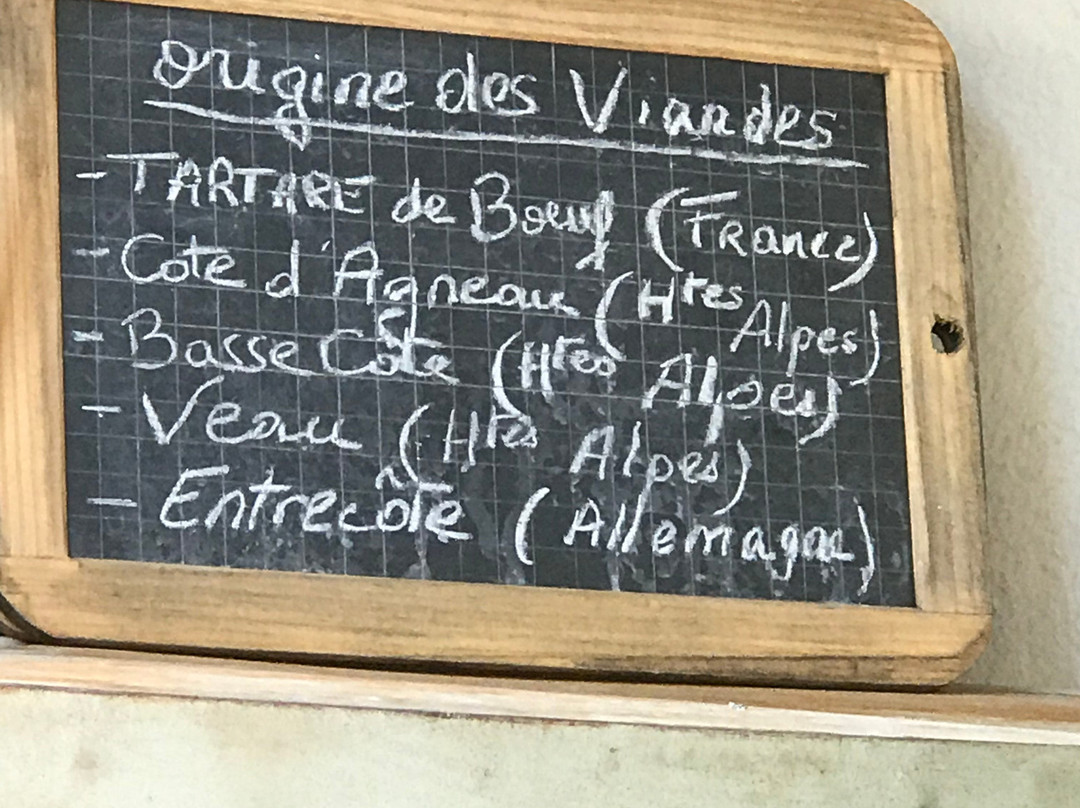 Origine des Viandes
- TARTARE de Boeuf (France)
- Cote d'Agneau (Htes Alpes)
- Basse Côte (Htes Alpes)
- Veau (Htes Alpes)
- Entrecôte (Allemagne)